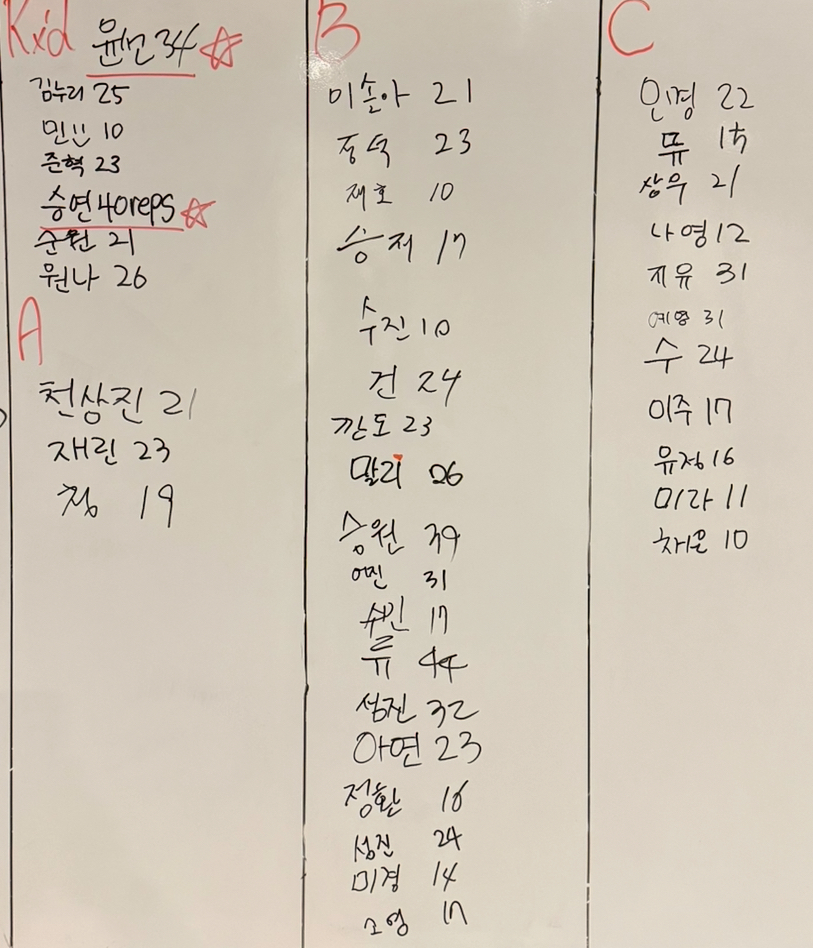 Kid 윤선 34
김누리 25
민 10
준혁 23
승연 40reps
순원 21
원나 26
A
천상진 21
재린 23
청 19
B
미손아 21
정덕 23
재호 10
승저 17
수진 10
건 24
깐도 23
말리 26
승원 39
예진 31
수민 17
류 44
성진 32
아연 23
정환 16
성진 24
미경 14
소영 17
C
인경 22
뮤 15
상우 21
나영 12
지유 31
예영 31
수 24
이주 17
유정 16
미라 11
채은 10